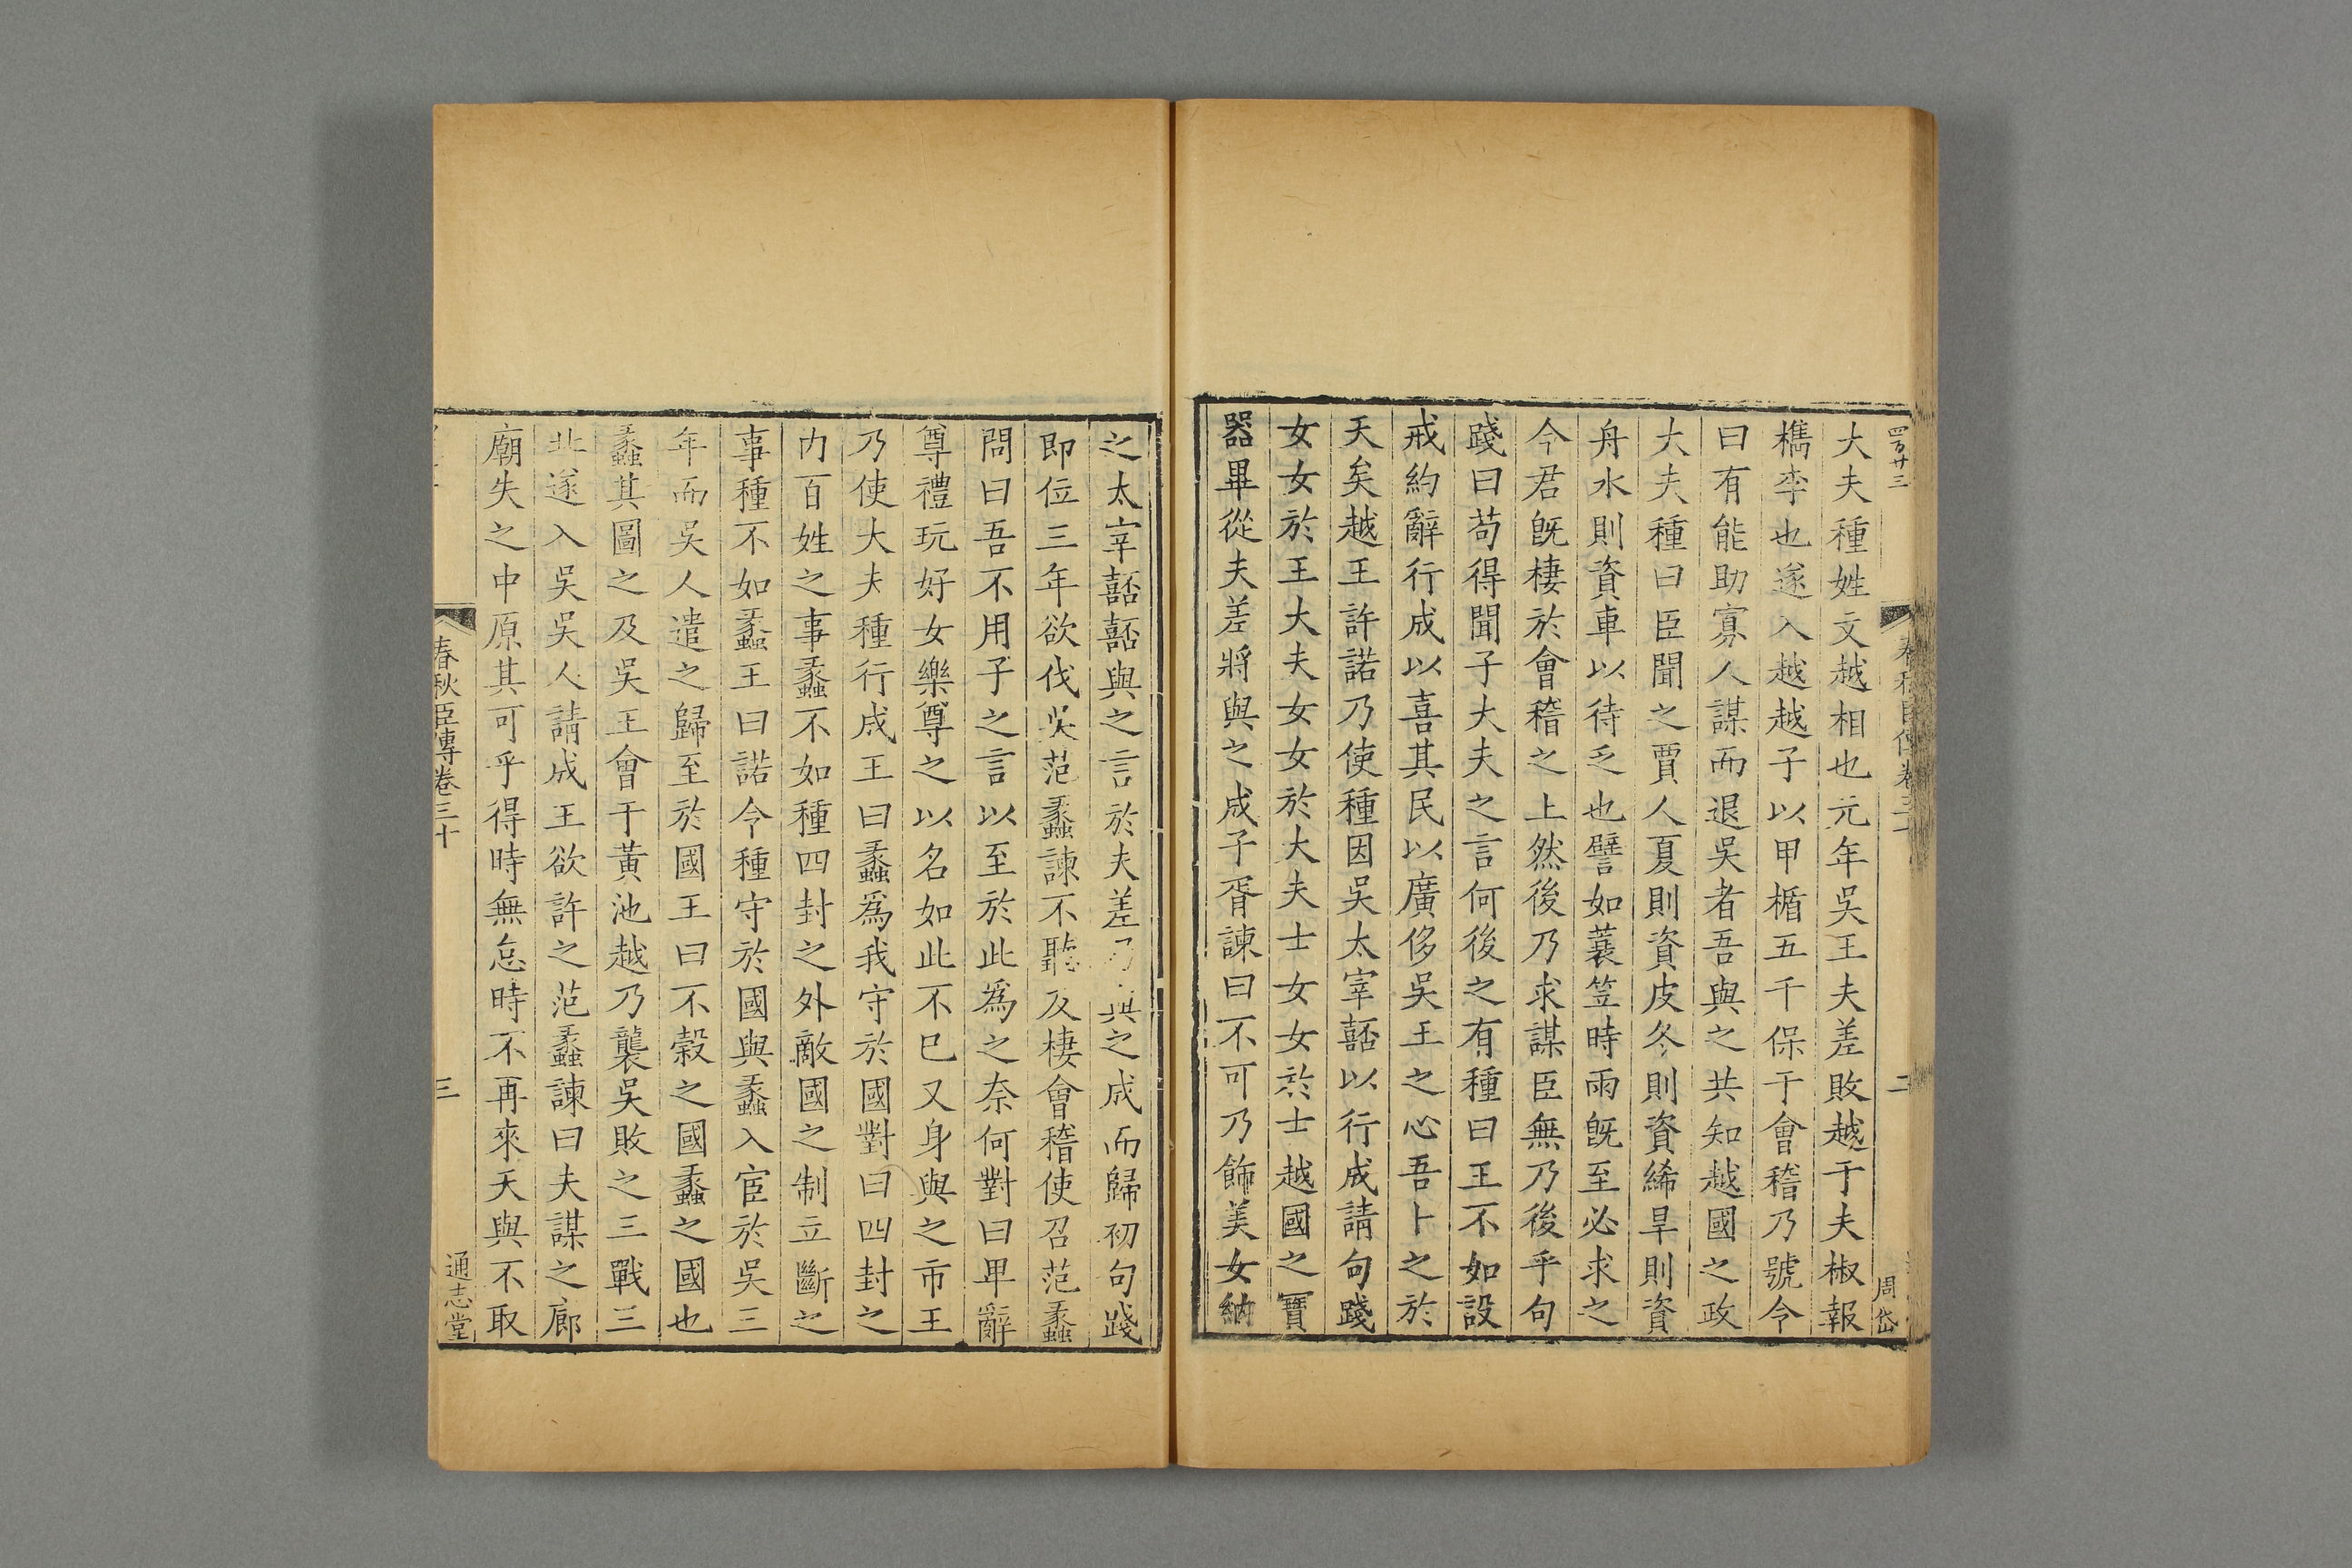 四百廿三
周岱
二
大夫種姓文越相也元年吳王夫差敗越于夫椒報
檇李也遂入越越子以甲楯五千保于會稽乃號令
曰有能助寡人謀而退吳者吾與之共知越國之政
大夫種曰臣聞之賈人夏則資皮冬則資絺旱則資
舟水則資車以待乏也譬如蓑笠時雨旣至必求之
今君旣棲於會稽之上然後乃求謀臣無乃後乎句
踐曰苟得聞子大夫之言何後之有種曰王不如設
戒約辭行成以喜其民以廣侈吳王之心吾卜之於
天矣越王許諾乃使種因吳太宰嚭以行成請句踐
女女於王大夫女女於大夫士女女於士越國之寶
器畢從夫差將與之成子胥諫曰不可乃飾美女納
之太宰嚭嚭與之言於夫差乃與之成而歸初句踐
即位三年欲伐吳范蠡諫不聽及棲會稽使召范蠡
問曰吾不用子之言以至於此爲之奈何對曰卑辭
尊禮玩好女樂尊之以名如此不已又身與之市王
乃使大夫種行成王曰蠡爲我守於國對曰四封之
內百姓之事蠡不如種四封之外敵國之制立斷之
事種不如蠡王曰諾令種守於國與蠡入宦於吳三
年而吳人遣之歸至於國王曰不穀之國蠡之國也
蠡其圖之及吳王會于黃池越乃襲吳敗之三戰三
北遂入吳吳人請成王欲許之范蠡諫曰夫謀之廊
廟失之中原其可乎得時無怠時不再來天與不取
春秋臣傳卷三十
三
通志堂